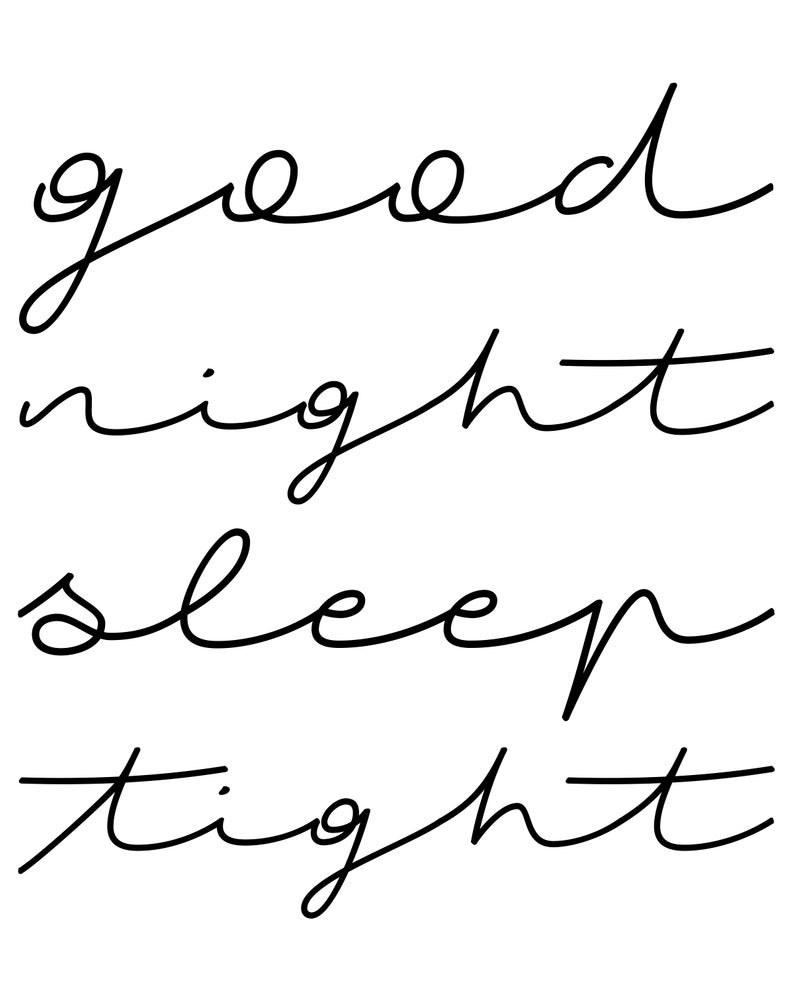 good
night
sleep
tight